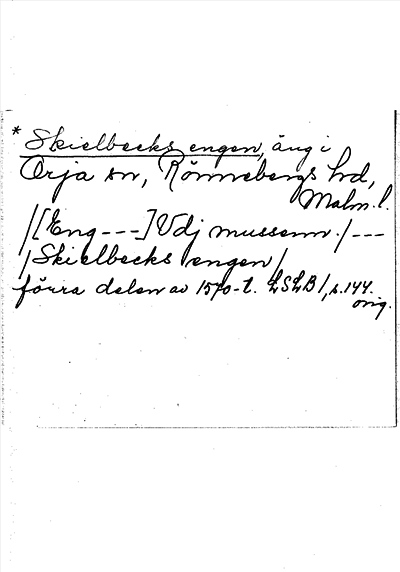 * Skielbecks engen, äng i
Örja sn, Rönnebergs hd,
Malm. l.
/[Eng---] Vdj mussenn:/---
/Skielbecks engen/
förra delen av 1570-t. LSLB1, s.144.
orig.